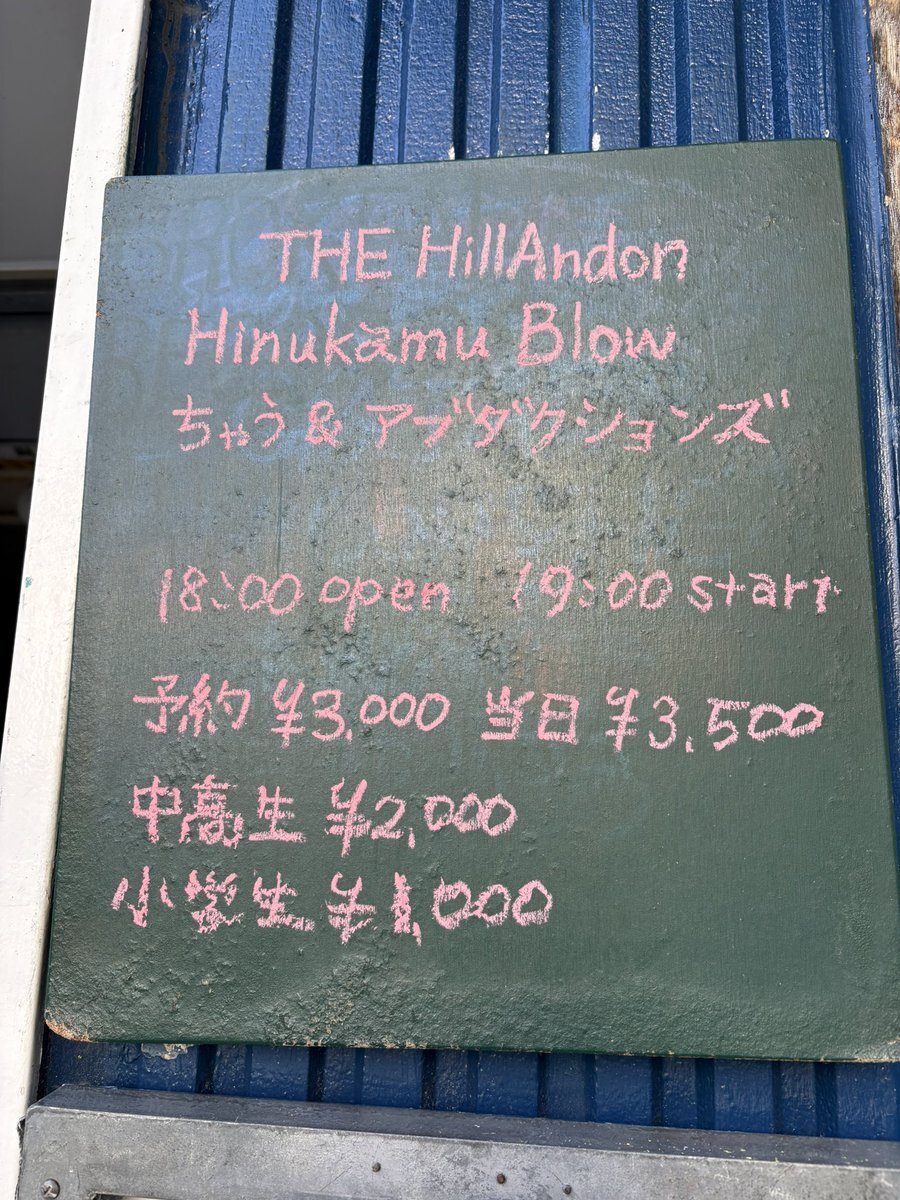 THE HillAndon
Hinukamu Blow
ちゃう & アブダクションズ
18:00 open 19:00 start
予約 ¥3,000 当日 ¥3,500
中高生 ¥2,000
小学生 ¥1,000